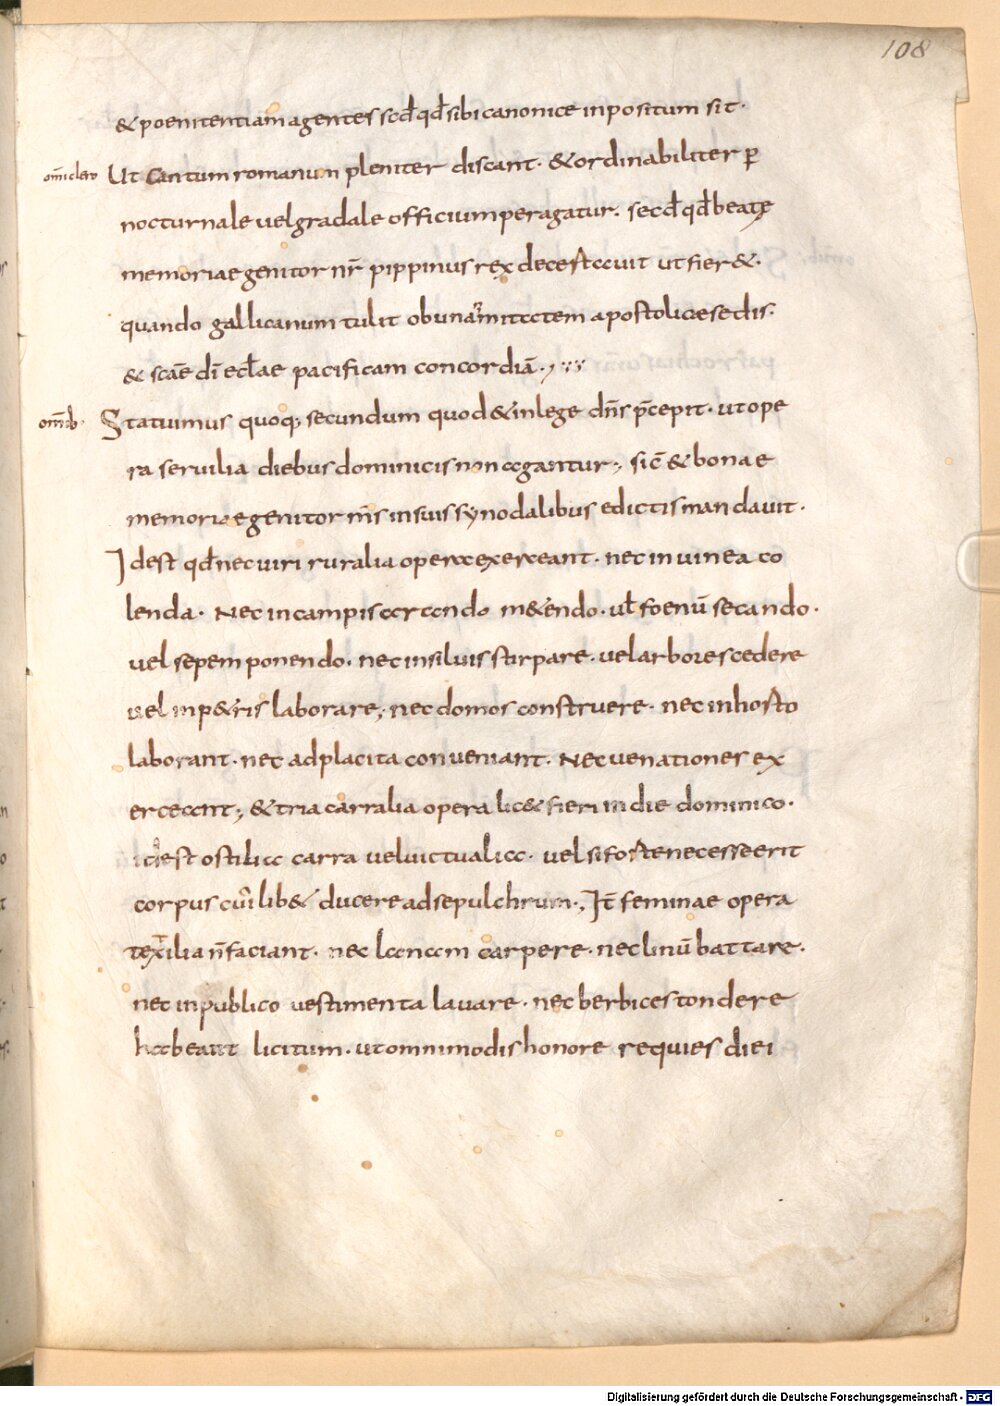 108
& poenitentiam agentes scd̄ qd̄ sibi canonice inpositum sit·
om̄i clero Ut cantum romanum pleniter discant· & ordinabiliter p̄
nocturnale vel gradale officium peragatur· secd̄ qd̄ beatę
memoriae genitor nr̄ pippinus rex decertavit ut fier&·
quando gallicanum tulit ob unanimitatem apostolicae sedis·
& scāe dī eclae pacificam concordiā·
om̄ib· Statuimus quoq; secundum quod & in lege dn̄s p̄cepit· ut ope
ra servilia diebus dominicis non agantur; sic̄ & bonae
memoriae genitor m̄s in suis synodalibus edictis mandavit·
Idest qd̄ nec viri ruralia opera exerceant· nec in vinea co
lenda· Nec in campis arando m&endo· vl̄ foenū secando·
vel sepem ponendo· nec in silvis stirpare· vel arbores cedere
vel in p&ris laborare; nec domos construere· nec in hosto
laborant· nec ad placita conveniant· Nec venationes ex
erceant; & tria carralia opera lic& fieri in die dominico·
idest ostilia carra vel victualia· vel si forte necesse erit
corpus cui lib& ducere ad sepulchrum; It̄ feminae opera
textilia n̄ faciant· nec lanam carpere· nec linū battare·
nec in publico vestimenta lavare· nec berbices tondere
habeant licitum· ut omnimodis honore requies diei
Digitalisierung gefördert durch die Deutsche Forschungsgemeinschaft - DFG